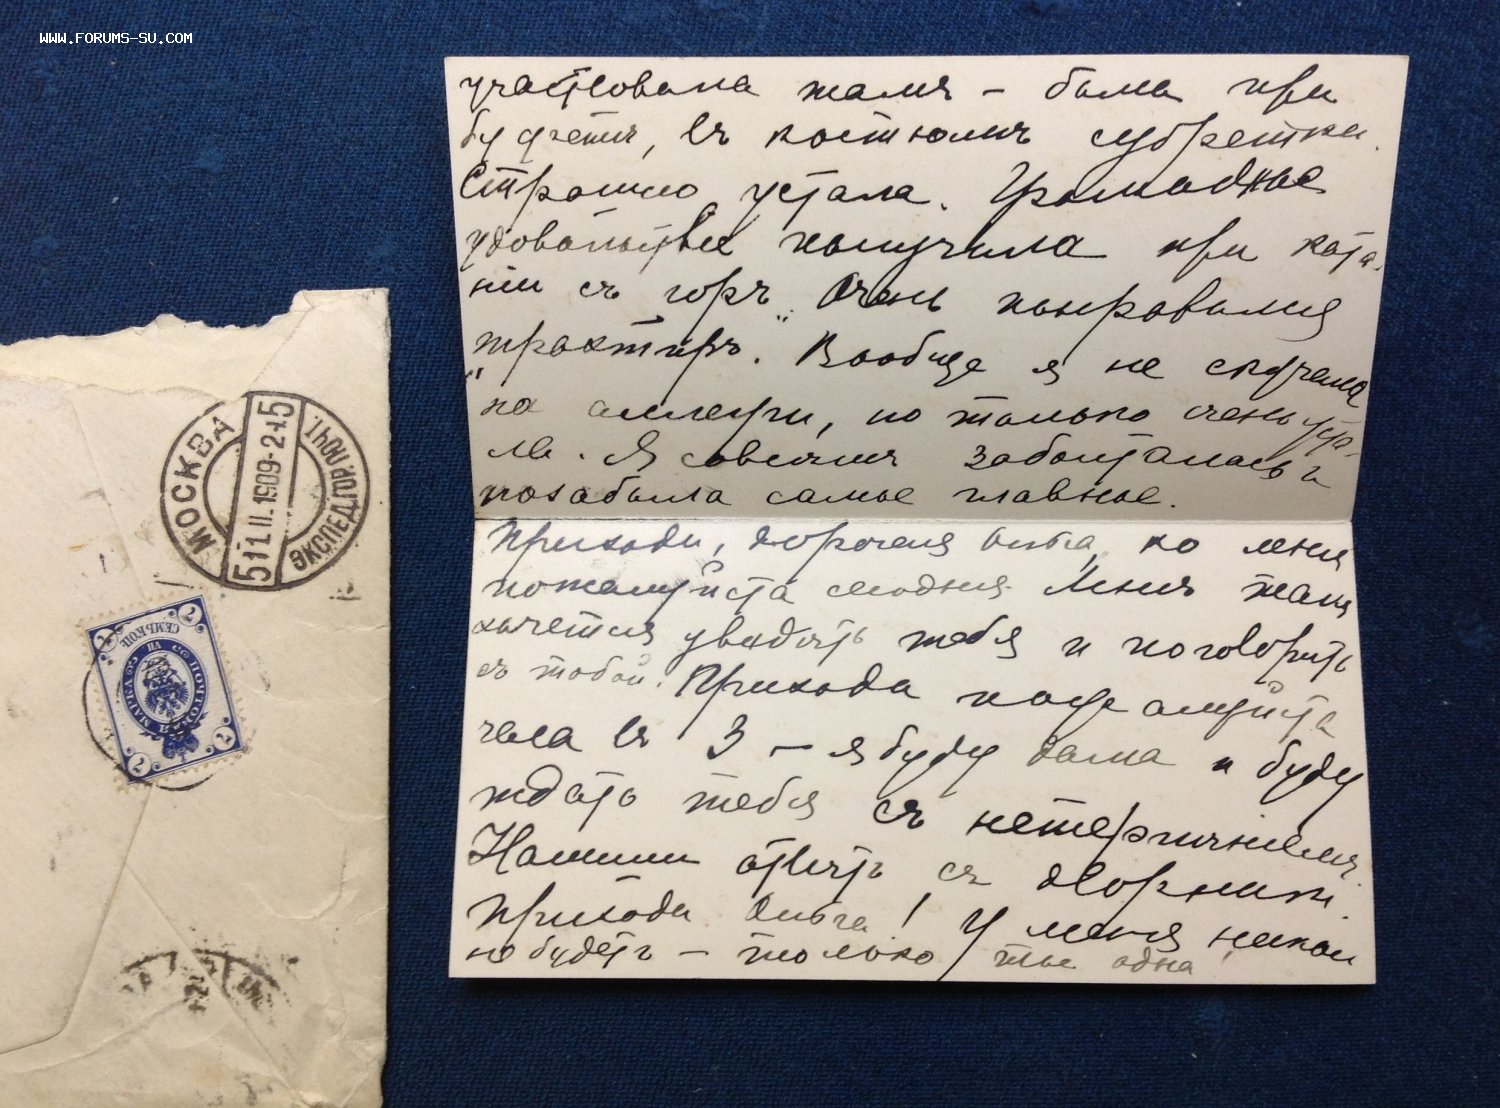 www.forums-su.com
участвовала тамъ – была при
буфетѣ, въ костюмѣ субретки.
Страшно устала. Громадное
удовольствіе получила при ката-
ніи съ горъ. Очень понравился
"трактиръ". Вообще я не скучала
на аллегри, но только очень уста-
ла. Я совсѣмъ заболталась и
позабыла самое главное.
Приходи, дорогая Ольга, ко мнѣ
пожалуйста сегодня. Мнѣ такъ
хочется увидѣть тебя и поговорить
съ тобой. Приходи пожалуйста
часа въ 3 – я буду дома и буду
ждать тебя съ нетерпѣніемъ.
Напиши отвѣтъ съ дворникомъ.
Приходи Ольга! У меня никого
не будетъ – только ты одна
МОСКВА
5 11.II.1909-2 ч.15
ЭКСПЕД. ГОР. ПОЧТ.
7 7
СЕМЬ КОП.
VII
ПОЧТОВАЯ МАРКА
7 7